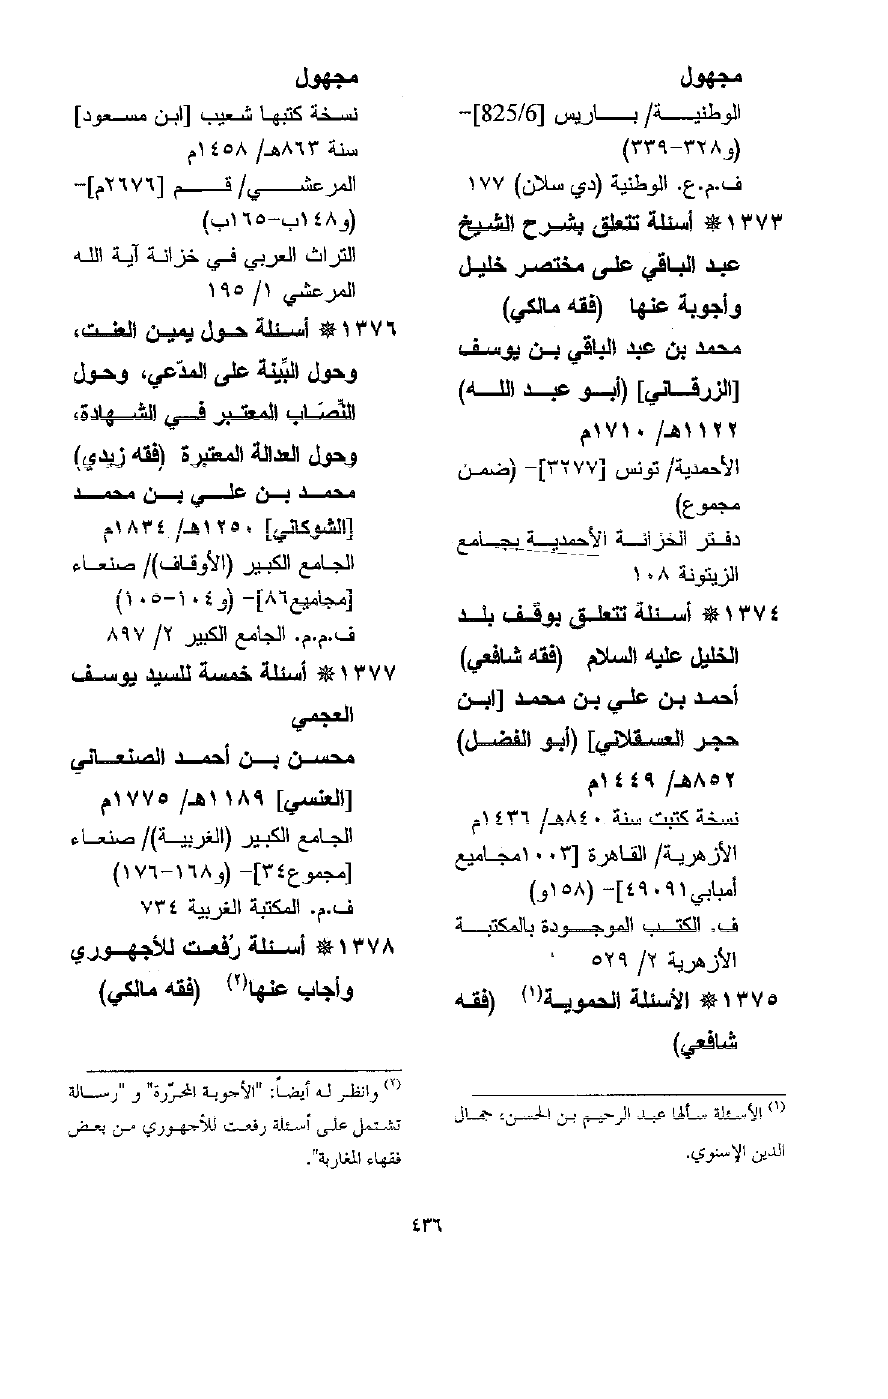 مجهول
الوطنية/ باريس [825/6]-
(و٣٢٨-٣٣٩)
ف.م.ع. الوطنية (دي سلان) ١٧٧
١٣٧٣* أسئلة تتعلق بشرح الشيخ
عبد الباقي على مختصر خليل
وأجوبة عنها (فقه مالكي)
محمد بن عبد الباقي بن يوسف
[الزرقاني] (أبو عبد الله)
١١٢٢هـ/ ١٧١٠م
الأحمدية/ تونس [٣٢٧٧]- (ضمن
مجموع)
دفتر الخزانة الأحمدية بجامع
الزيتونة ١٠٨
١٣٧٤* أسئلة تتعلق بوقف بلد
الخليل عليه السلام (فقه شافعي)
أحمد بن علي بن محمد [ابن
حجر العسقلاني] (أبو الفضل)
٨٥٢هـ/ ١٤٤٩م
نسخة كتبت سنة ٨٤٠هـ/ ١٤٣٦م
الأزهرية/ القاهرة [١٠٠٣مجاميع
أمبابي٤٩٠٩١]- (١٥٨و)
ف. الكتب الموجودة بالمكتبة
الأزهرية ٢/ ٥٢٩
١٣٧٥* الأسئلة الحموية(١) (فقه
شافعي)
(١) الأسئلة سألها عبد الرحيم بن الحسن، جمال
الدين الإسنوي.
مجهول
نسخة كتبها شعيب [ابن مسعود]
سنة ٨٦٣هـ/ ١٤٥٨م
المرعشي/ قم [٢٦٧٦م]-
(و١٤٨ب-١٦٥ب)
التراث العربي في خزانة آية الله
المرعشي ١/ ١٩٥
١٣٧٦* أسئلة حول يمين العنت،
وحول البيِّنة على المدّعي، وحول
النِّصَاب المعتبر في الشهادة،
وحول العدالة المعتبرة (فقه زيدي)
محمد بن علي بن محمد
[الشوكاني] ١٢٥٠هـ/ ١٨٣٤م
الجامع الكبير (الأوقاف)/ صنعاء
[مجاميع٨٦]- (و١٠٤-١٠٥)
ف.م.م. الجامع الكبير ٢/ ٨٩٧
١٣٧٧* أسئلة خمسة للسيد يوسف
العجمي
محسن بن أحمد الصنعاني
[العنسي] ١١٨٩هـ/ ١٧٧٥م
الجامع الكبير (الغربية)/ صنعاء
[مجموع٣٤]- (و١٦٨-١٧٦)
ف.م. المكتبة الغربية ٧٣٤
١٣٧٨* أسئلة رُفعت للأجهوري
وأجاب عنها(٢) (فقه مالكي)
(٢) وانظر له أيضاً: "الأجوبة المحرّرة" و "رسالة
تشتمل على أسئلة رفعت للأجهوري من بعض
فقهاء المغاربة".
٤٣٦